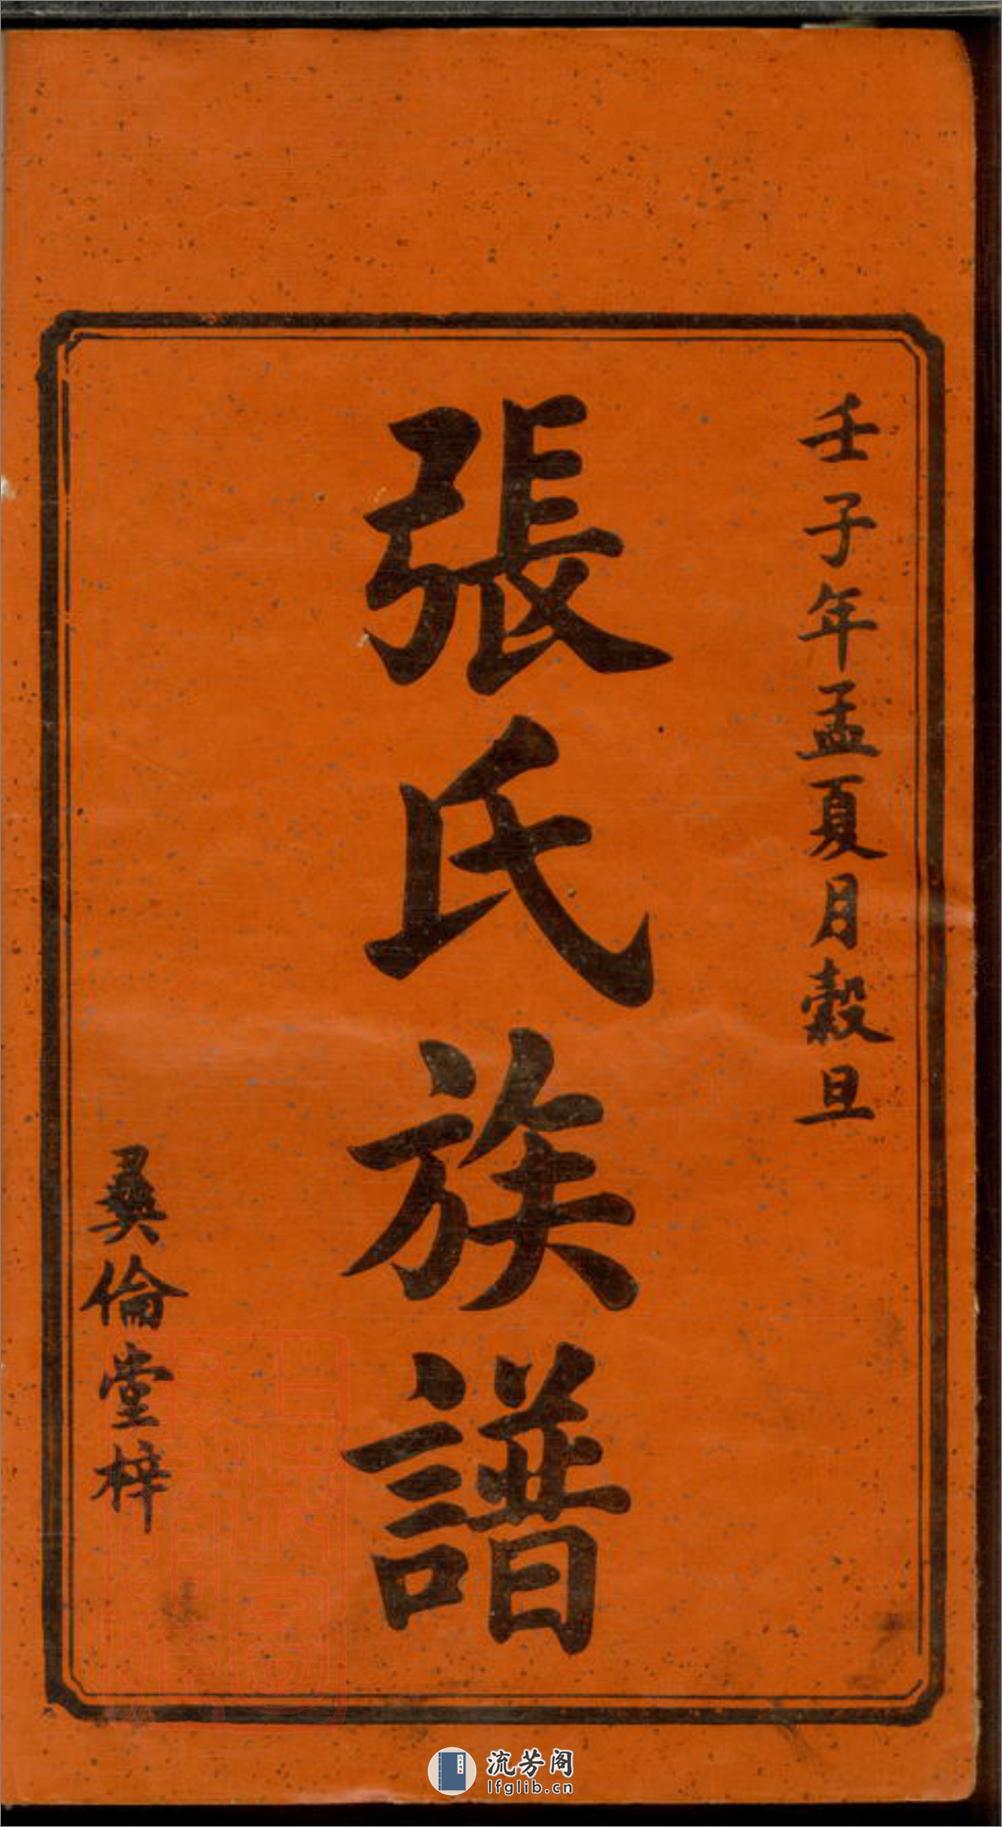 壬子年孟夏月穀旦
張氏族譜
彞倫堂梓
流芳阁
lfglib.cn